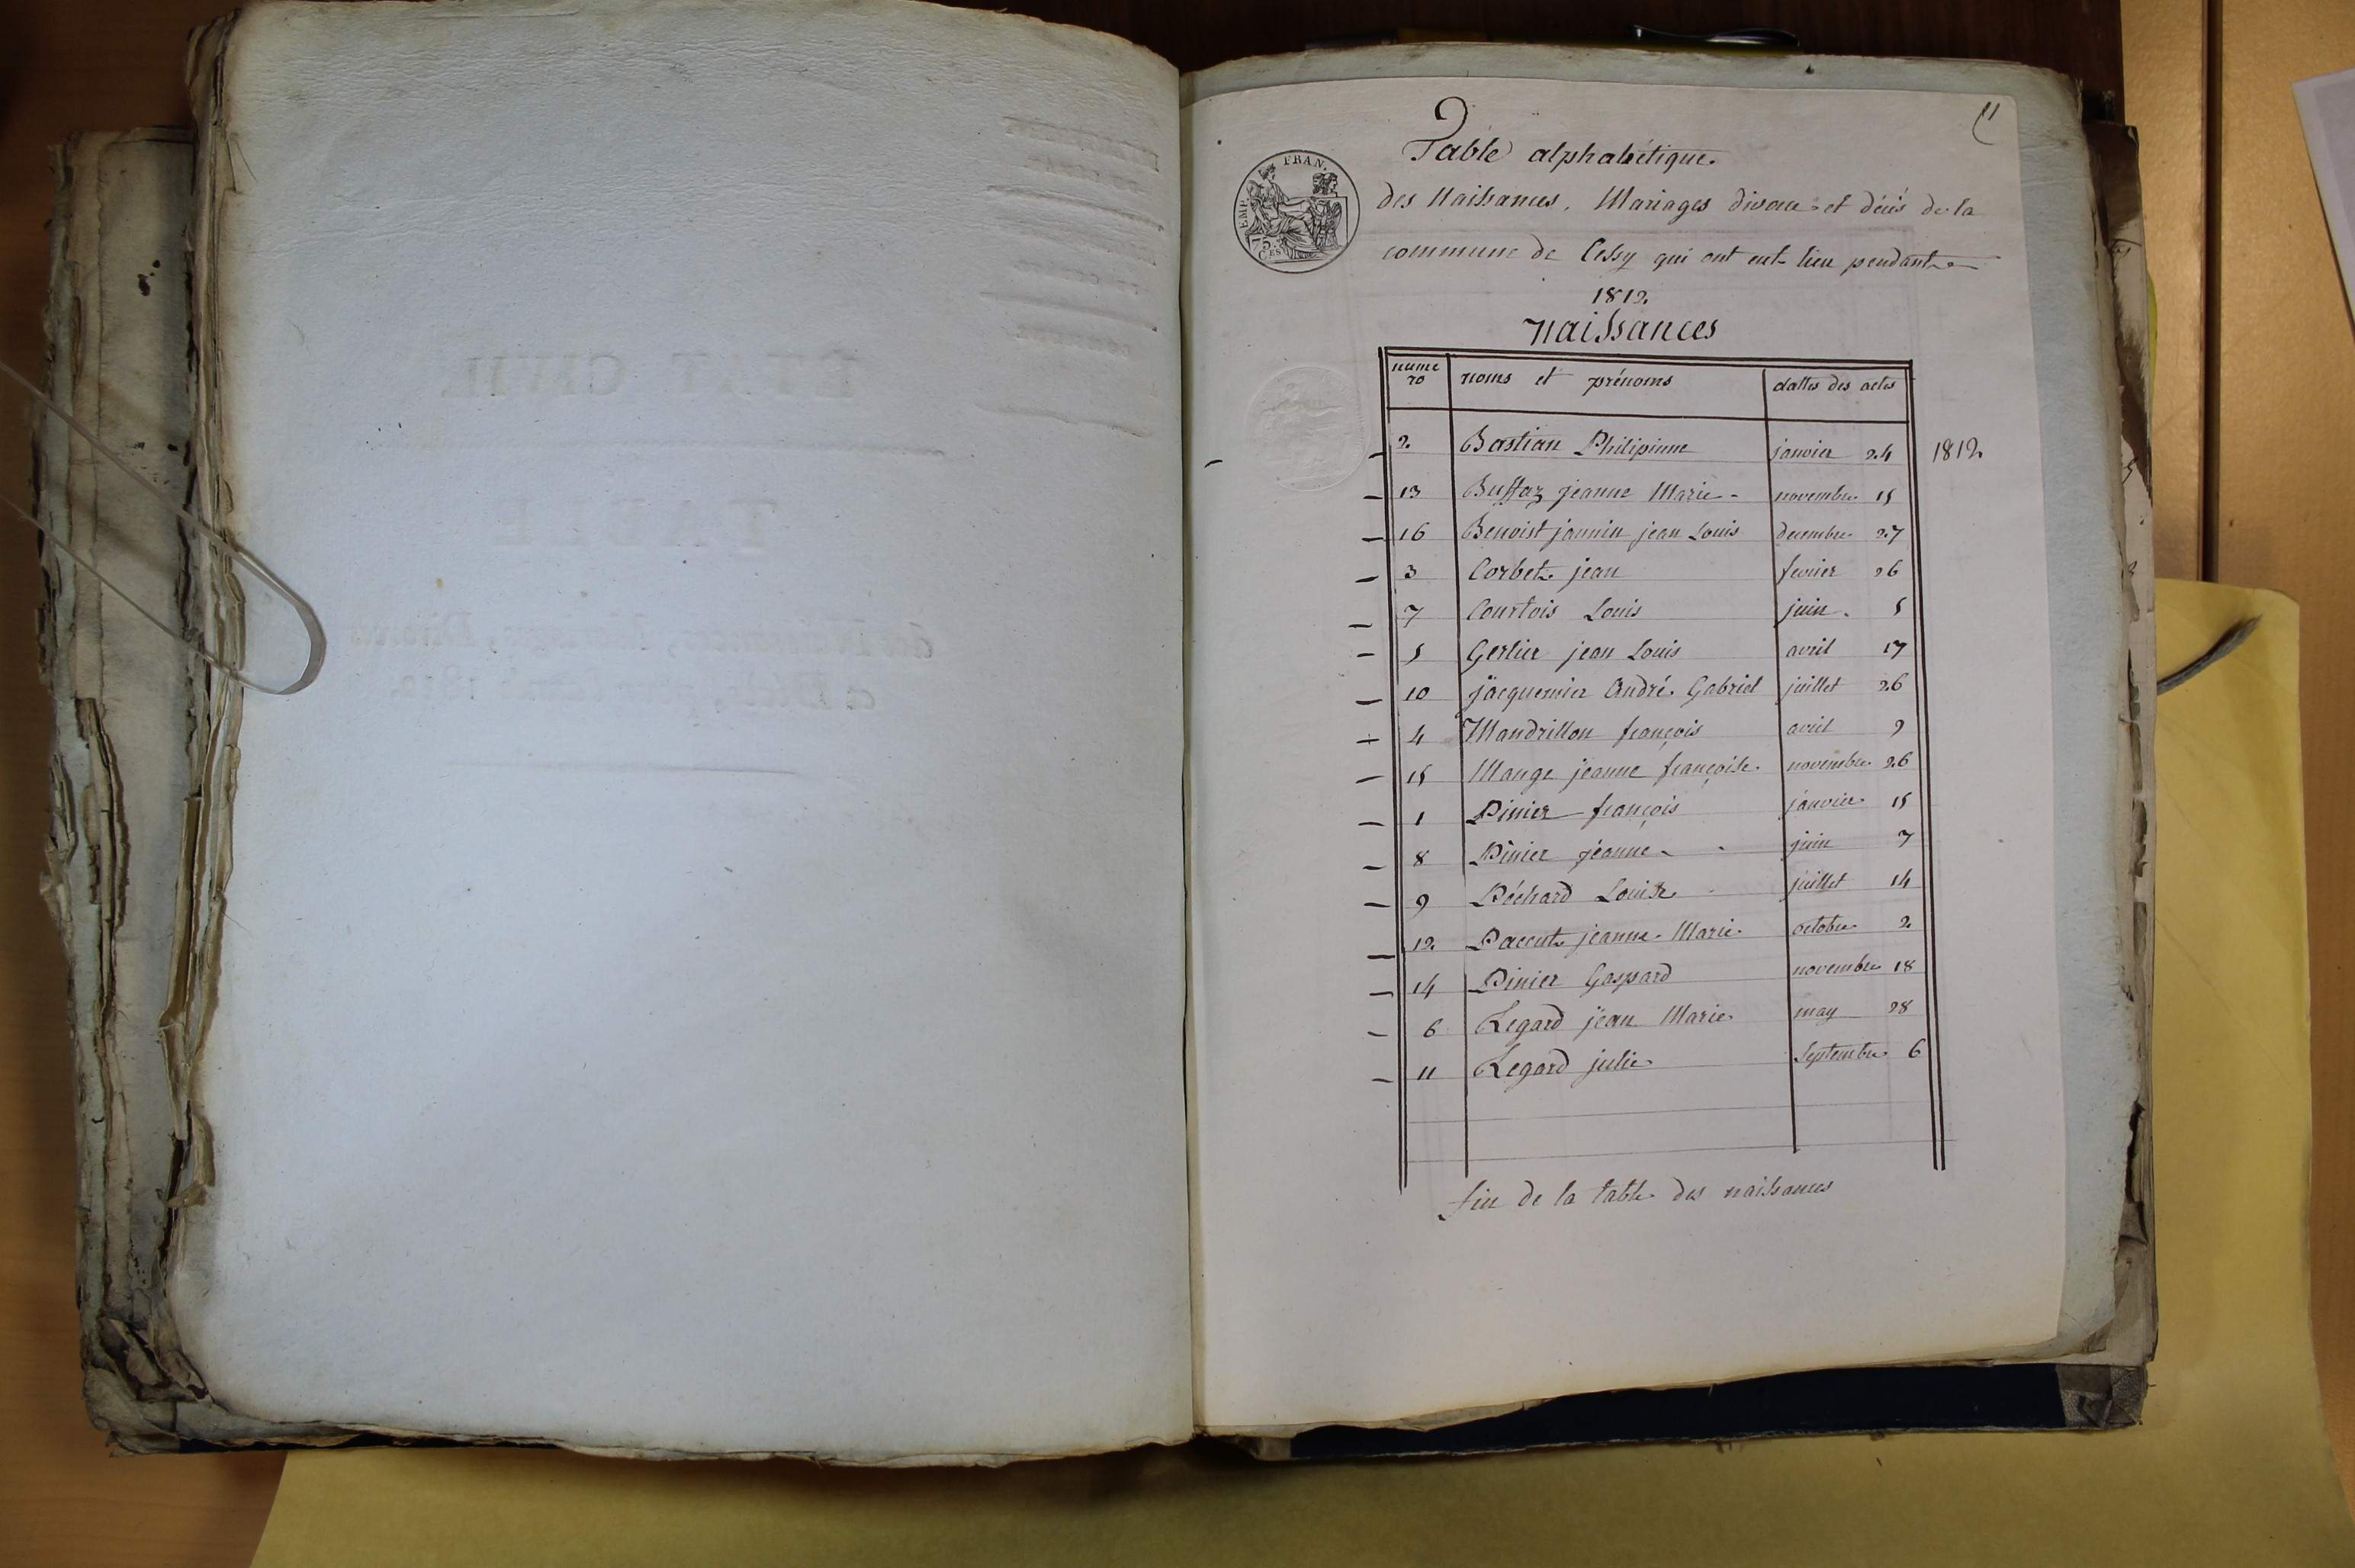 11
Table alphabétique
EMP. FRAN.
75.
CES
des Naissances, Mariages divorce et décès de la
commune de Cessy qui ont eut lieu pendant
1812.
Naissances
nume ro noms et prénoms dattes des actes
2. Bastian Philipinne janvier 24 1812
13 Buffaz jeanne Marie novembre 15
16 Benoist jannin jean Louis decembre 27
3 Corbet jean fevrier 26
7 Courtois Louis juin 5
5 Gerlier jean Louis avril 17
10 jacquemier André Gabriel juillet 26
4 Mandrillon françois avril 9
15 Mange jeanne françoise novembre 26
1 Pinier françois janvier 15
8 Pinier jeanne juin 7
9 Péchard Louise juillet 14
12. Paccut jeanne Marie octobre 2
14 Pinier Gaspard novembre 18
6 Regard jean Marie may 28
11 Regard julie Septembre 6
fin de la table des naissances